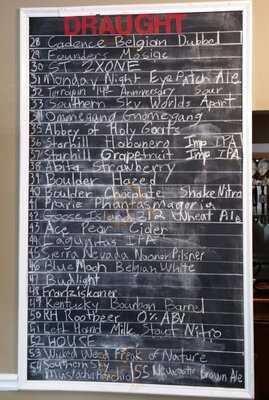 DRAUGHT
28 Cadence Belgian Dubbel
29 Founders Mosaic
30 ST 2XONE
31 Monday Night Eye Patch Ale
32 Terrapin 14th Anniversary Sour
33 Southern Sky Worlds Apart
34 Ommegang Gnomegang
35 Abbey of Holy Goats
36 Starhill Habanero Imp IPA
37 Starhill Grapefruit Imp IPA
38 Abita Strawberry
39 Boulder Hazed
40 Boulder Chocolate Shake Nitro
41 Prarie Phantasmagoria
42 Goose Island 312 Wheat Ale
43 Ace Pear Cider
44 Lagunitas IPA
45 Sierra Nevada Nooner Pilsner
46 Blue Moon Belgian White
47 Budlight
48 Franziskaner
49 Kentucky Bourbon Barrel
50 RH Rootbeer 0% ABV
51 Left Hand Milk Stout Nitro
52 HOUSE
53 Wicked Weed Freak of Nature
54 Southern Sky
55 Newcastle Brown Ale